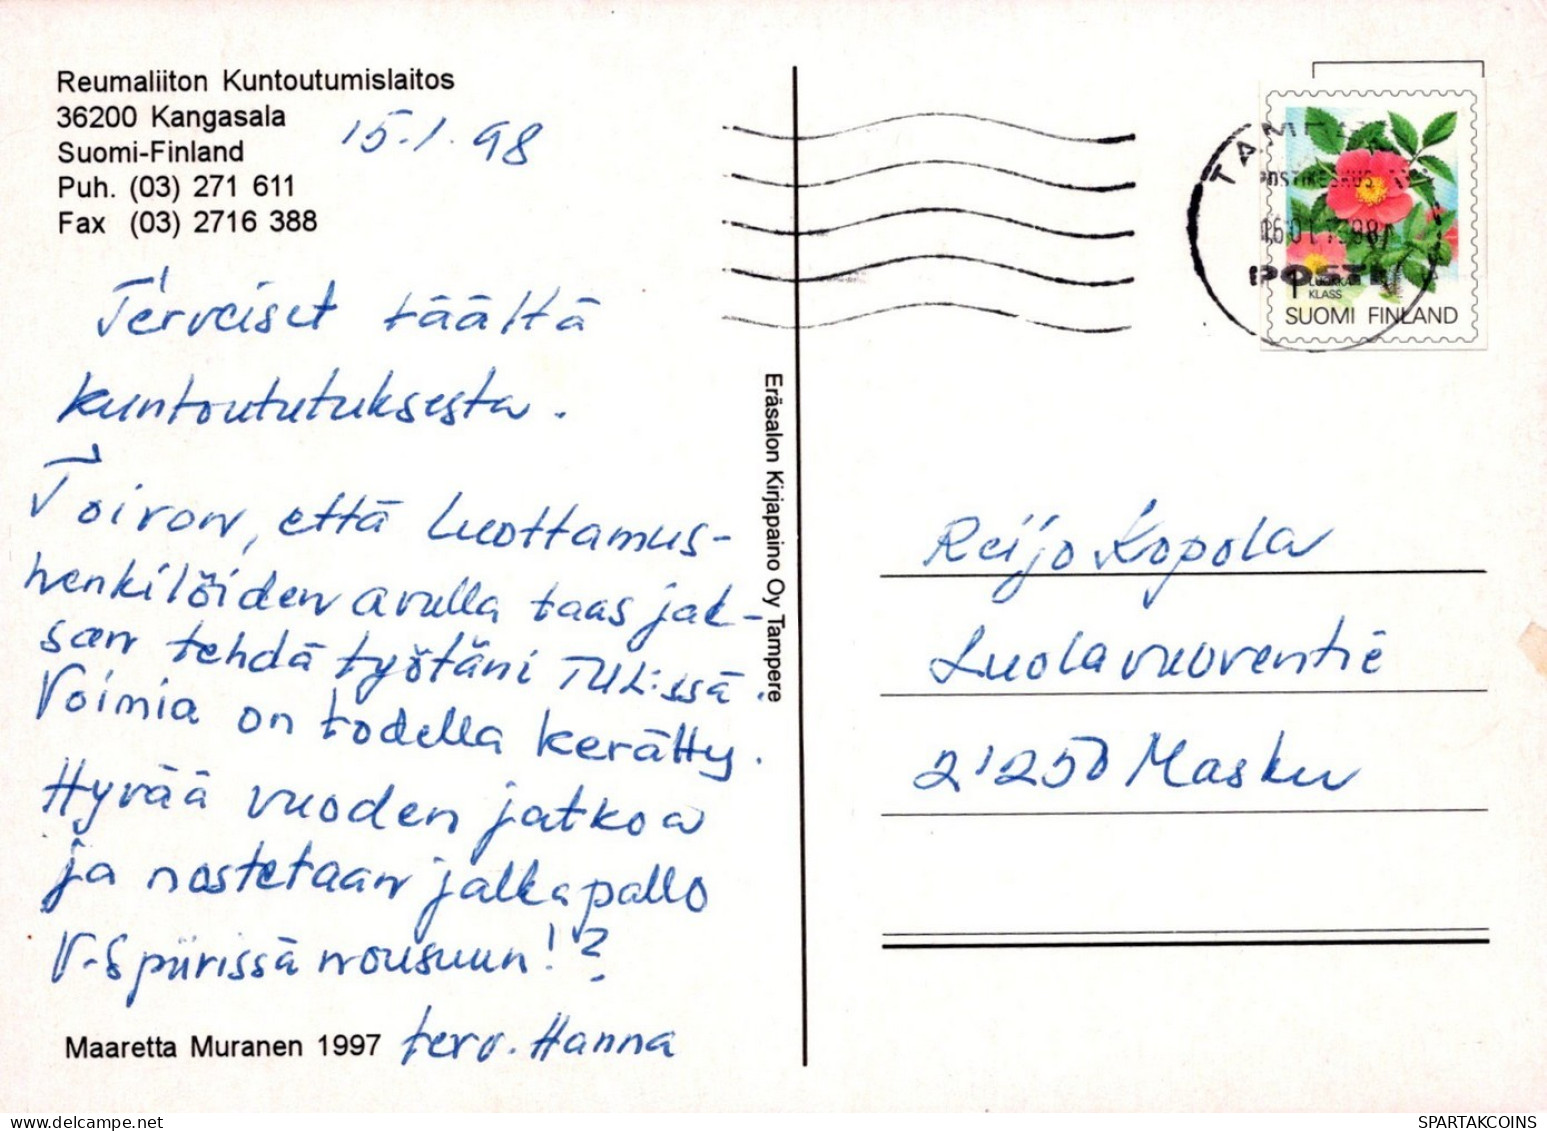 Reumaliiton Kuntoutumislaitos
36200 Kangasala
Suomi-Finland
Puh. (03) 271 611
Fax (03) 2716 388
15.1.98
Terveiset täältä
kuntoututuksesta.
Toivon, että luottamus-
henkilöiden avulla taas jak-
san tehdä työtäni TUL:ssä.
Voimia on todella kerätty.
Hyvää vuoden jatkoa
ja nostetaan jalkapallo
V-S piirissä nousuun!?
terv. Hanna
Maaretta Muranen 1997
Eräsalon Kirjapaino Oy Tampere
POSTIKESKUS
16.01.1998
POSTI
1 LUOKKA
KLASS
SUOMI FINLAND
Reijo Kopola
Luolavuorentie
21250 Masku
SPARTAKCOINS